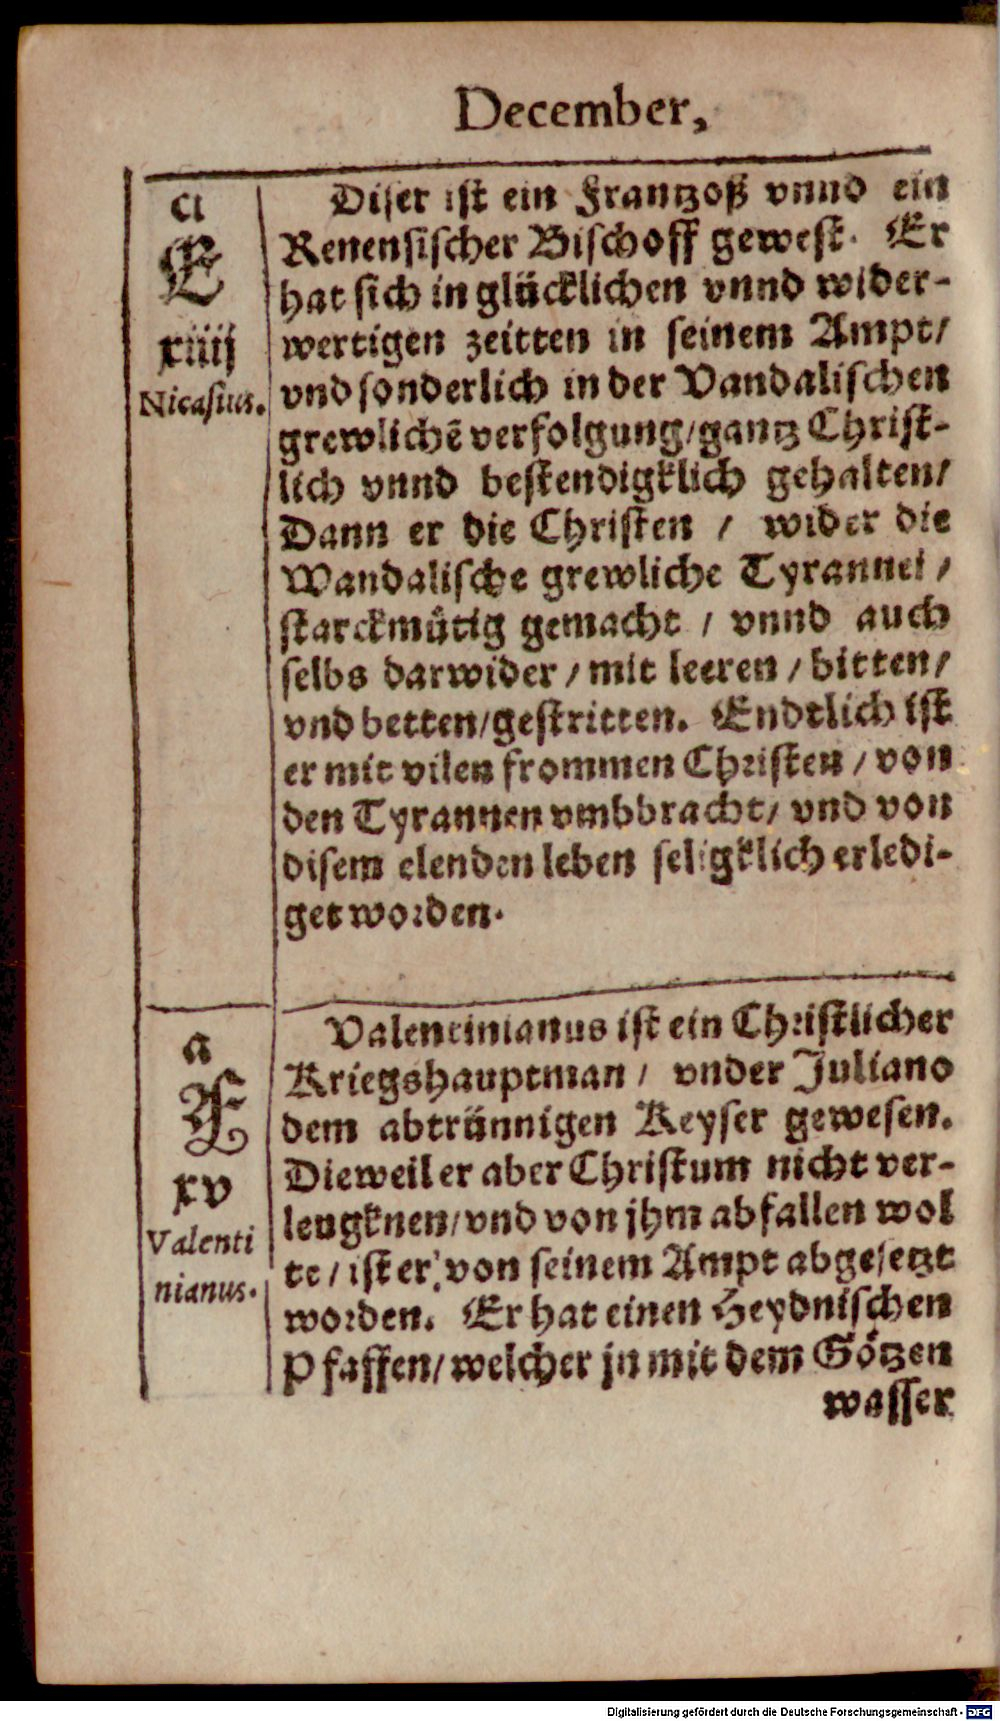 December,
a
E
xiiij
Nicasius.
Diser ist ein Frantzoß vnnd ein
Renensischer Bischoff gewest. Er
hat sich in glücklichen vnnd wider-
wertigen zeitten in seinem Ampt/
vnd sonderlich in der Vandalischen
grewlichē verfolgung/gantz Christ-
lich vnnd bestendigklich gehalten/
Dann er die Christen / wider die
Wandalische grewliche Tyrannei /
starckmütig gemacht / vnnd auch
selbs darwider / mit leeren / bitten/
vnd betten/gestritten. Endtlich ist
er mit vilen frommen Christen / von
den Tyrannen vmbbracht/ vnd von
disem elenden leben seligklich erledi-
get worden.
a
F
xv
Valenti
nianus.
Valentinianus ist ein Christlicher
Kriegshauptman / vnder Juliano
dem abtrünnigen Keyser gewesen.
Dieweil er aber Christum nicht ver-
leugknen/vnd von jhm abfallen wol
te / ist er von seinem Ampt abgesetzt
worden. Er hat einen Heydnischen
Pfaffen/welcher jn mit dem Götzen
wasser
Digitalisierung gefördert durch die Deutsche Forschungsgemeinschaft - DFG